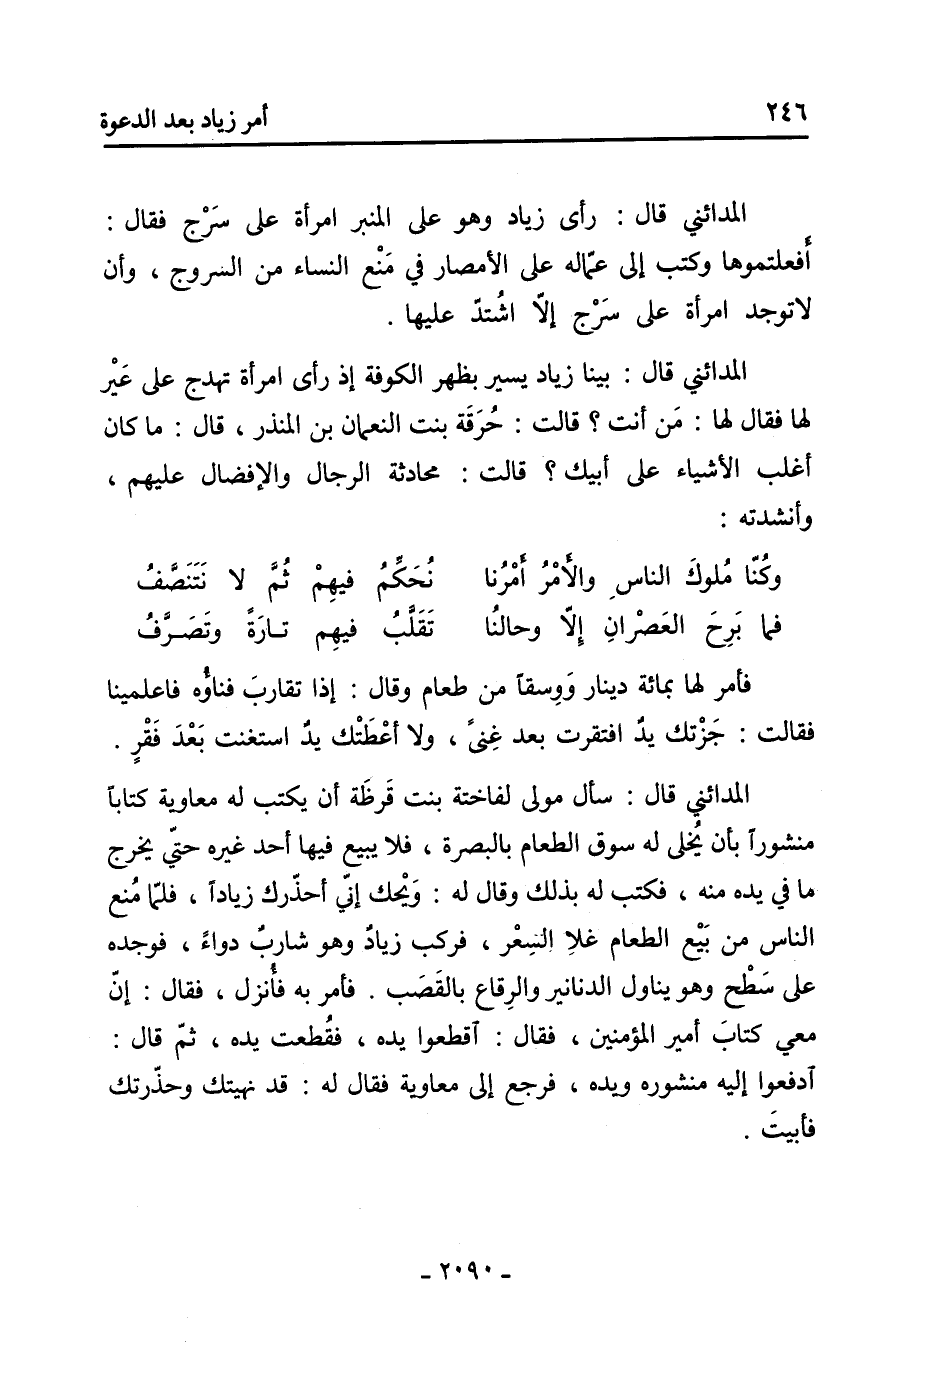 ٢٤٦
أمر زياد بعد الدعوة
المدائني قال : رأى زياد وهو على المنبر امرأة على سَرْج فقال :
أَفعلتموها وكتب إلى عمّاله على الأمصار في مَنْع النساء من السروج ، وأن
لاتوجد امرأة على سَرْج إلّا اشُتدّ عليها .
المدائني قال : بينا زياد يسير بظهر الكوفة إذ رأى امرأة تهدج على عَيْر
لها فقال لها : مَن أنت ؟ قالت : حُرَقَة بنت النعمان بن المنذر ، قال : ما كان
أغلب الأشياء على أبيك ؟ قالت : محادثة الرجال والإفضال عليهم ،
وأنشدته :
وكُنّا مُلوكَ الناسِ والأَمْرُ أَمْرُنا نُحَكِّمُ فيهِمْ ثُمَّ لا نَتَنَصَّفُ
فما بَرِحَ العَصْرانِ إلّا وحالنُا تَقَلَّبُ فيهِم تـارَةً وتَصَـرَّفُ
فأمر لها بمائة دينار وَوِسقاً من طعام وقال : إذا تقاربَ فناؤُه فاعلمينا
فقالت : جَزْتك يدٌ افتقرت بعد غِنىً ، ولا أعْطَتْك يدٌ استغنت بَعْدَ فَقْرٍ .
المدائني قال : سأل مولى لفاختة بنت قَرظَة أن يكتب له معاوية كتاباً
منشوراً بأن يُخلى له سوق الطعام بالبصرة ، فلا يبيع فيها أحد غيره حتّي يخرج
ما في يده منه ، فكتب له بذلك وقال له : وَيْحك إنّي أحذّرك زياداً ، فلمّا مُنع
الناس من بَيْع الطعام غلا السِعْر ، فركب زيادٌ وهو شاربٌ دواءً ، فوجده
على سَطْح وهو يناول الدنانير والرِقاع بالقَصَب . فأمر به فأُنزل ، فقال : إنّ
معي كتابَ أمير المؤمنين ، فقال : آقطعوا يده ، فقُطعت يده ، ثمّ قال :
آدفعوا إليه منشوره ويده ، فرجع إلى معاوية فقال له : قد نهيتك وحذّرتك
فأبيتَ .
- ٢٠٩٠ -